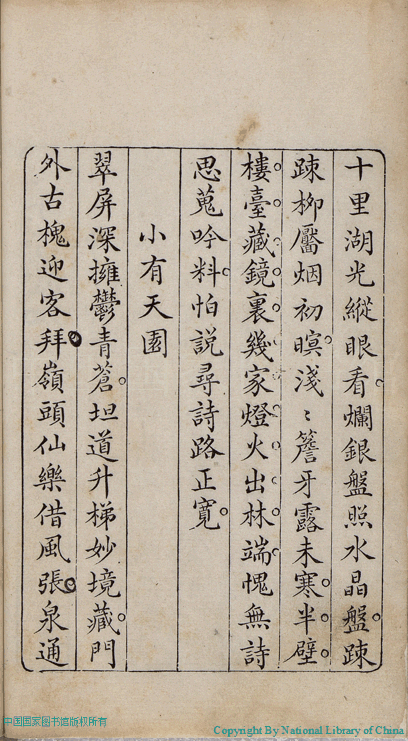 十里湖光縱眼看爛銀盤照水晶盤踈
踈柳靨烟初暝淺〻簷牙露未寒半壁
樓臺藏鏡裏幾家燈火出林端愧無詩
思蒐吟料怕説尋詩路正寬
小有天園
翠屏深擁鬱青蒼坦道升梯妙境藏門
外古槐迎客拜嶺頭仙樂借風張泉通
中国国家图书馆版权所有
Copyright By National Library of China